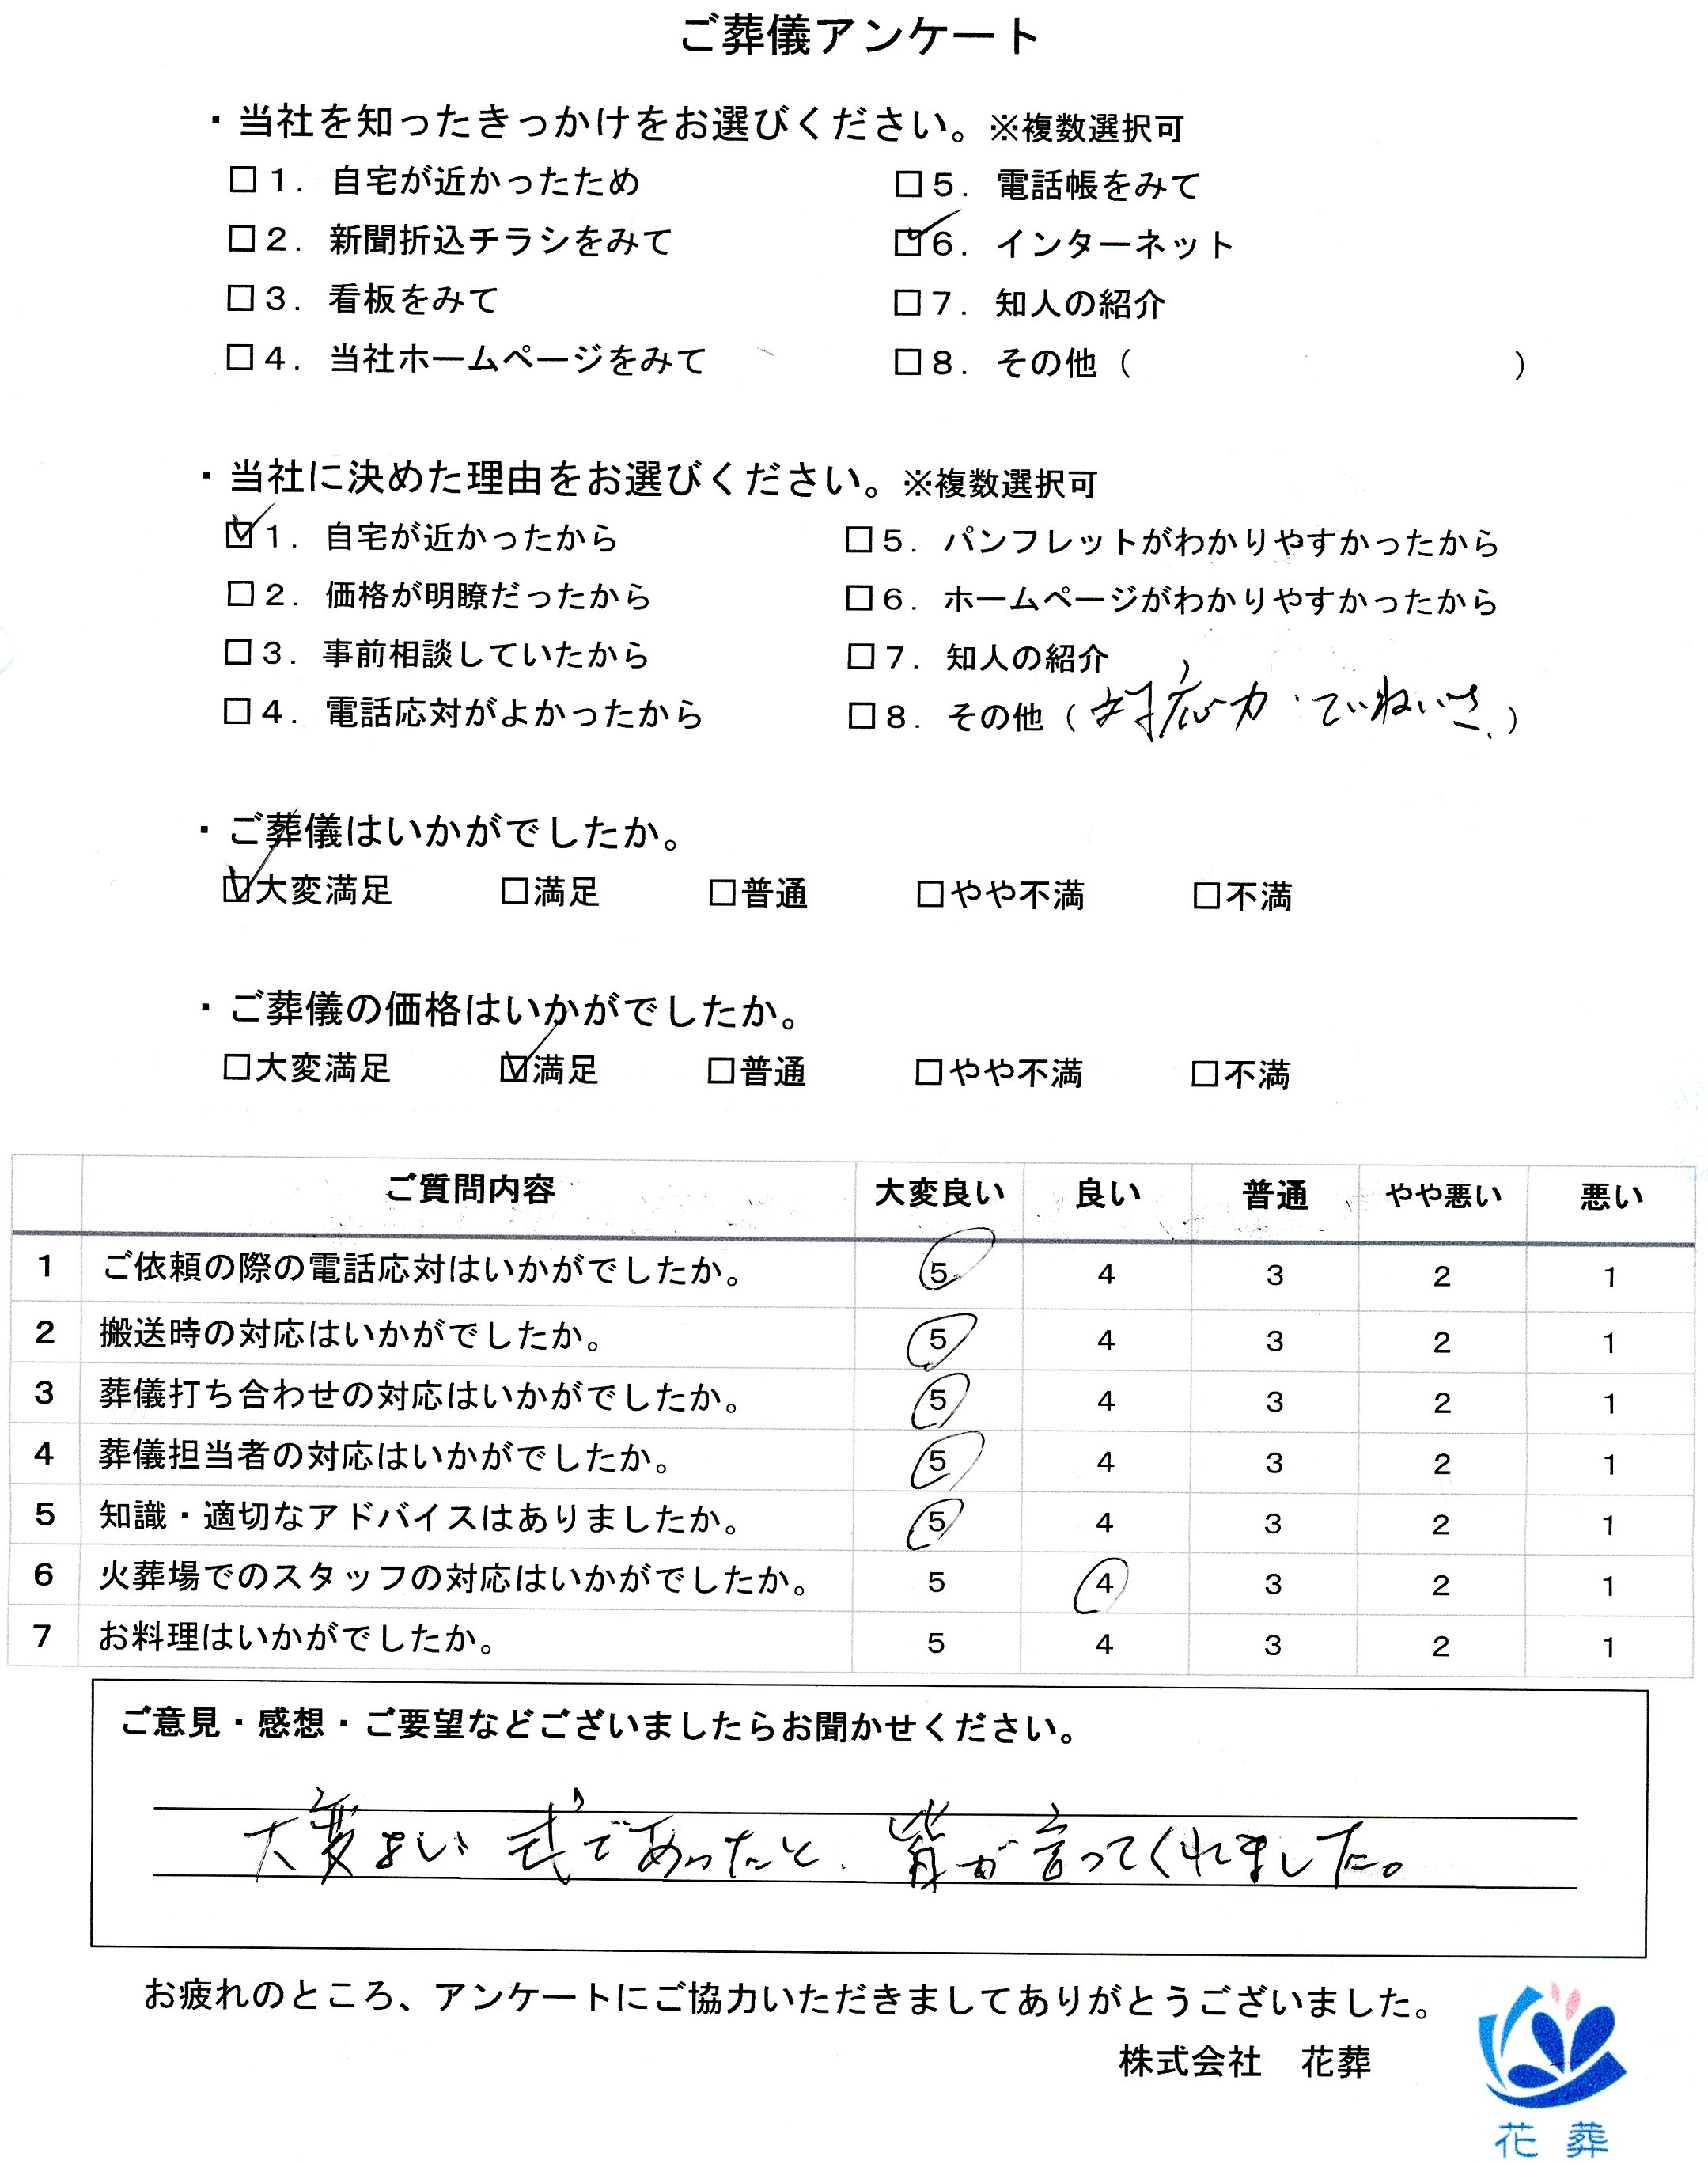 ご葬儀アンケート
・当社を知ったきっかけをお選びください。※複数選択可
□1．自宅が近かったため □5．電話帳をみて
□2．新聞折込チラシをみて ☑6．インターネット
□3．看板をみて □7．知人の紹介
□4．当社ホームページをみて □8．その他（ ）
・当社に決めた理由をお選びください。※複数選択可
☑1．自宅が近かったから □5．パンフレットがわかりやすかったから
□2．価格が明瞭だったから □6．ホームページがわかりやすかったから
□3．事前相談していたから □7．知人の紹介
□4．電話応対がよかったから □8．その他（対応力・ていねいさ、）
・ご葬儀はいかがでしたか。
☑大変満足 □満足 □普通 □やや不満 □不満
・ご葬儀の価格はいかがでしたか。
□大変満足 ☑満足 □普通 □やや不満 □不満
ご質問内容 大変良い 良い 普通 やや悪い 悪い
1 ご依頼の際の電話応対はいかがでしたか。 5 4 3 2 1
2 搬送時の対応はいかがでしたか。 5 4 3 2 1
3 葬儀打ち合わせの対応はいかがでしたか。 5 4 3 2 1
4 葬儀担当者の対応はいかがでしたか。 5 4 3 2 1
5 知識・適切なアドバイスはありましたか。 5 4 3 2 1
6 火葬場でのスタッフの対応はいかがでしたか。 5 4 3 2 1
7 お料理はいかがでしたか。 5 4 3 2 1
ご意見・感想・ご要望などございましたらお聞かせください。
大変よい式であったと、皆が言ってくれました。
お疲れのところ、アンケートにご協力いただきましてありがとうございました。
株式会社 花葬
花葬